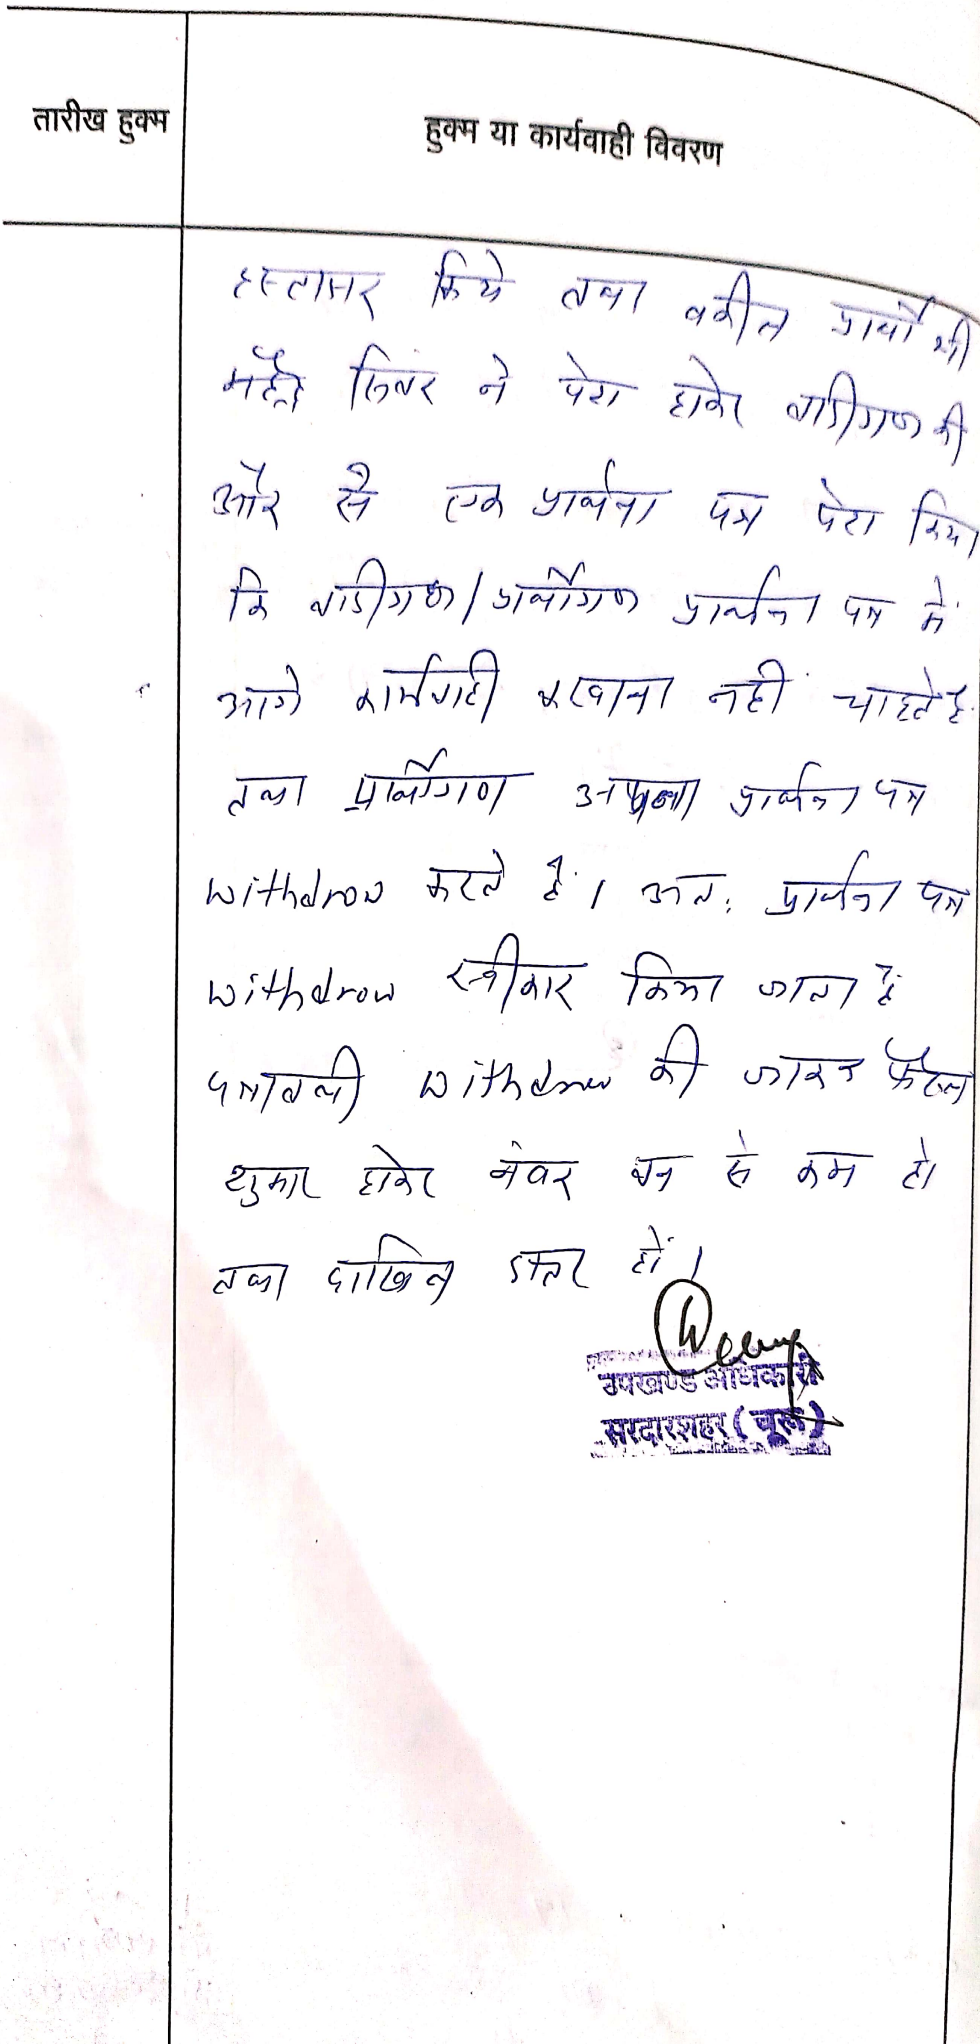 तारीख हुक्म
हुक्म या कार्यवाही विवरण
हस्ताक्षर किये तथा वकील प्रार्थी श्री
महेंद्र ने पेश होकर वादीगण की
और से एक प्रार्थना पत्र पेश किया
कि वादीगण/प्रार्थीगण प्रार्थना पत्र में
आगे कार्यवाही रखना नहीं चाहते है
तथा प्रार्थीगण अपना प्रार्थना पत्र
withdrow करते है। अतः प्रार्थना पत्र
withdrow स्वीकार किया जाता है
पत्रावली withdrow की जाकर फैसल
शुमार होकर नंबर से कम हो
तथा दाखिल दफ्तर हों।
उपखण्ड अधिकारी
सरदारशहर (चूरू)